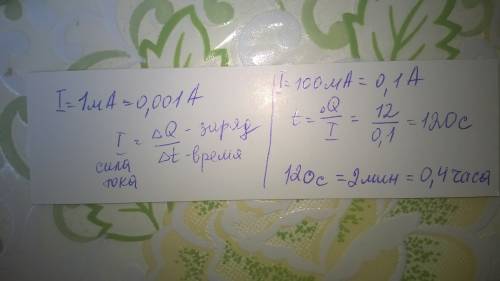 I = 1мА = 0,001А
I = ΔQ/Δt
- заряд
- время
сила
тока
I = 100мА = 0,1А
t = ΔQ/I = 12/0,1 = 120с
120с = 2мин = 0,4часа